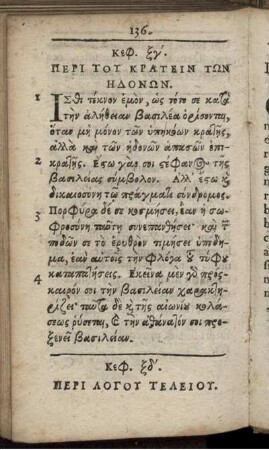 136.
Κεφ. ξγ΄.
ΠΕΡΙ ΤΟΥ ΚΡΑΤΕΙΝ ΤΩΝ
ΗΔΟΝΩΝ.
1 ΙΣθι τέκνον ἐμὸν, ὡς τότε σε κατὰ
τὴν ἀλήθειαν βασιλέα ὁρίσονται,
ὅταν μὴ μόνον τῶν ὑπηκόων κρατῇς,
ἀλλὰ καὶ τῶν ἡδονῶν ἁπασῶν ἐπι-
2 κρατῇς. Ἔςω γάρ σοι ςέφανος τῆς
βασιλείας σύμβολον. Ἀλλ' ἔςω καὶ
δικαιοσύνη τῷ πράγματι σύνδρομος.
3 Πορφύρα δέ σε κοσμήσει, ἐὰν ἡ σω-
φροσύνη ταύτῃ συνεπανθήσει· καὶ τῶν
ποδῶν σε τὸ ἐρυθρὸν τιμήσει ὑπόδη-
μα, ἐὰν αὐτοῖς τὴν φλόγα τοῦ τύφου
καταπατήσεις.
4 Ἐκεῖνα μὲν γὰρ πρός-
καιρόν σοι τὴν βασιλείαν χαρακτη-
ρίζει· ταῦτα δὲ καὶ τῆς αἰωνίου κολά-
σεως ῥύσεται, καὶ τὴν ἀθάνατόν σοι προ-
ξενεῖ βασιλείαν.
Κεφ. ξδ΄.
ΠΕΡΙ ΛΟΓΟΥ ΤΕΛΕΙΟΥ.